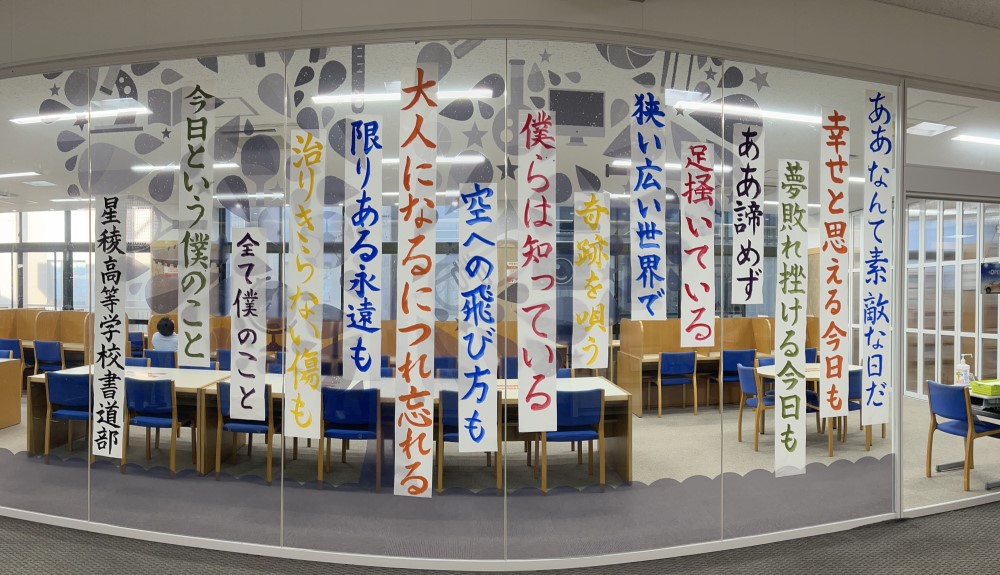 ああなんて素敵な日だ
幸せと思える今日も
夢敗れ挫ける今日も
ああ諦めず
足掻いている
狭い広い世界で
奇跡を唄う
僕らは知っている
空への飛び方も
大人になるにつれ忘れる
限りある永遠も
治りきらない傷も
全て僕のこと
今日という僕のこと
星稜高等学校書道部